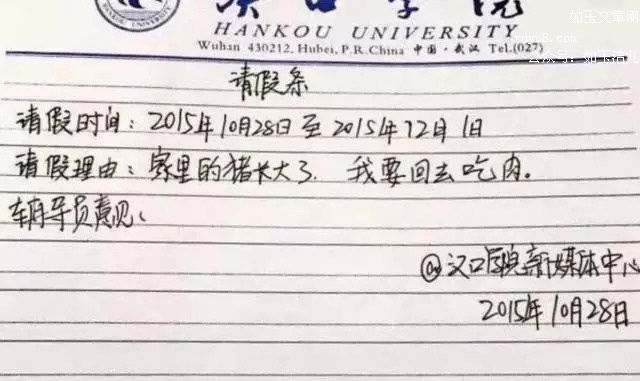 如玉文章网
HANKOU UNIVERSITY
Wuhan 430212, Hubei, P.R.China 中国·武汉 Tel.(027)
请假条
请假时间：2015年10月28日至2015年12月1日
请假理由：家里的猪长大了，我要回去吃肉。
辅导员意见：
@汉口学院新媒体中心
2015年10月28日